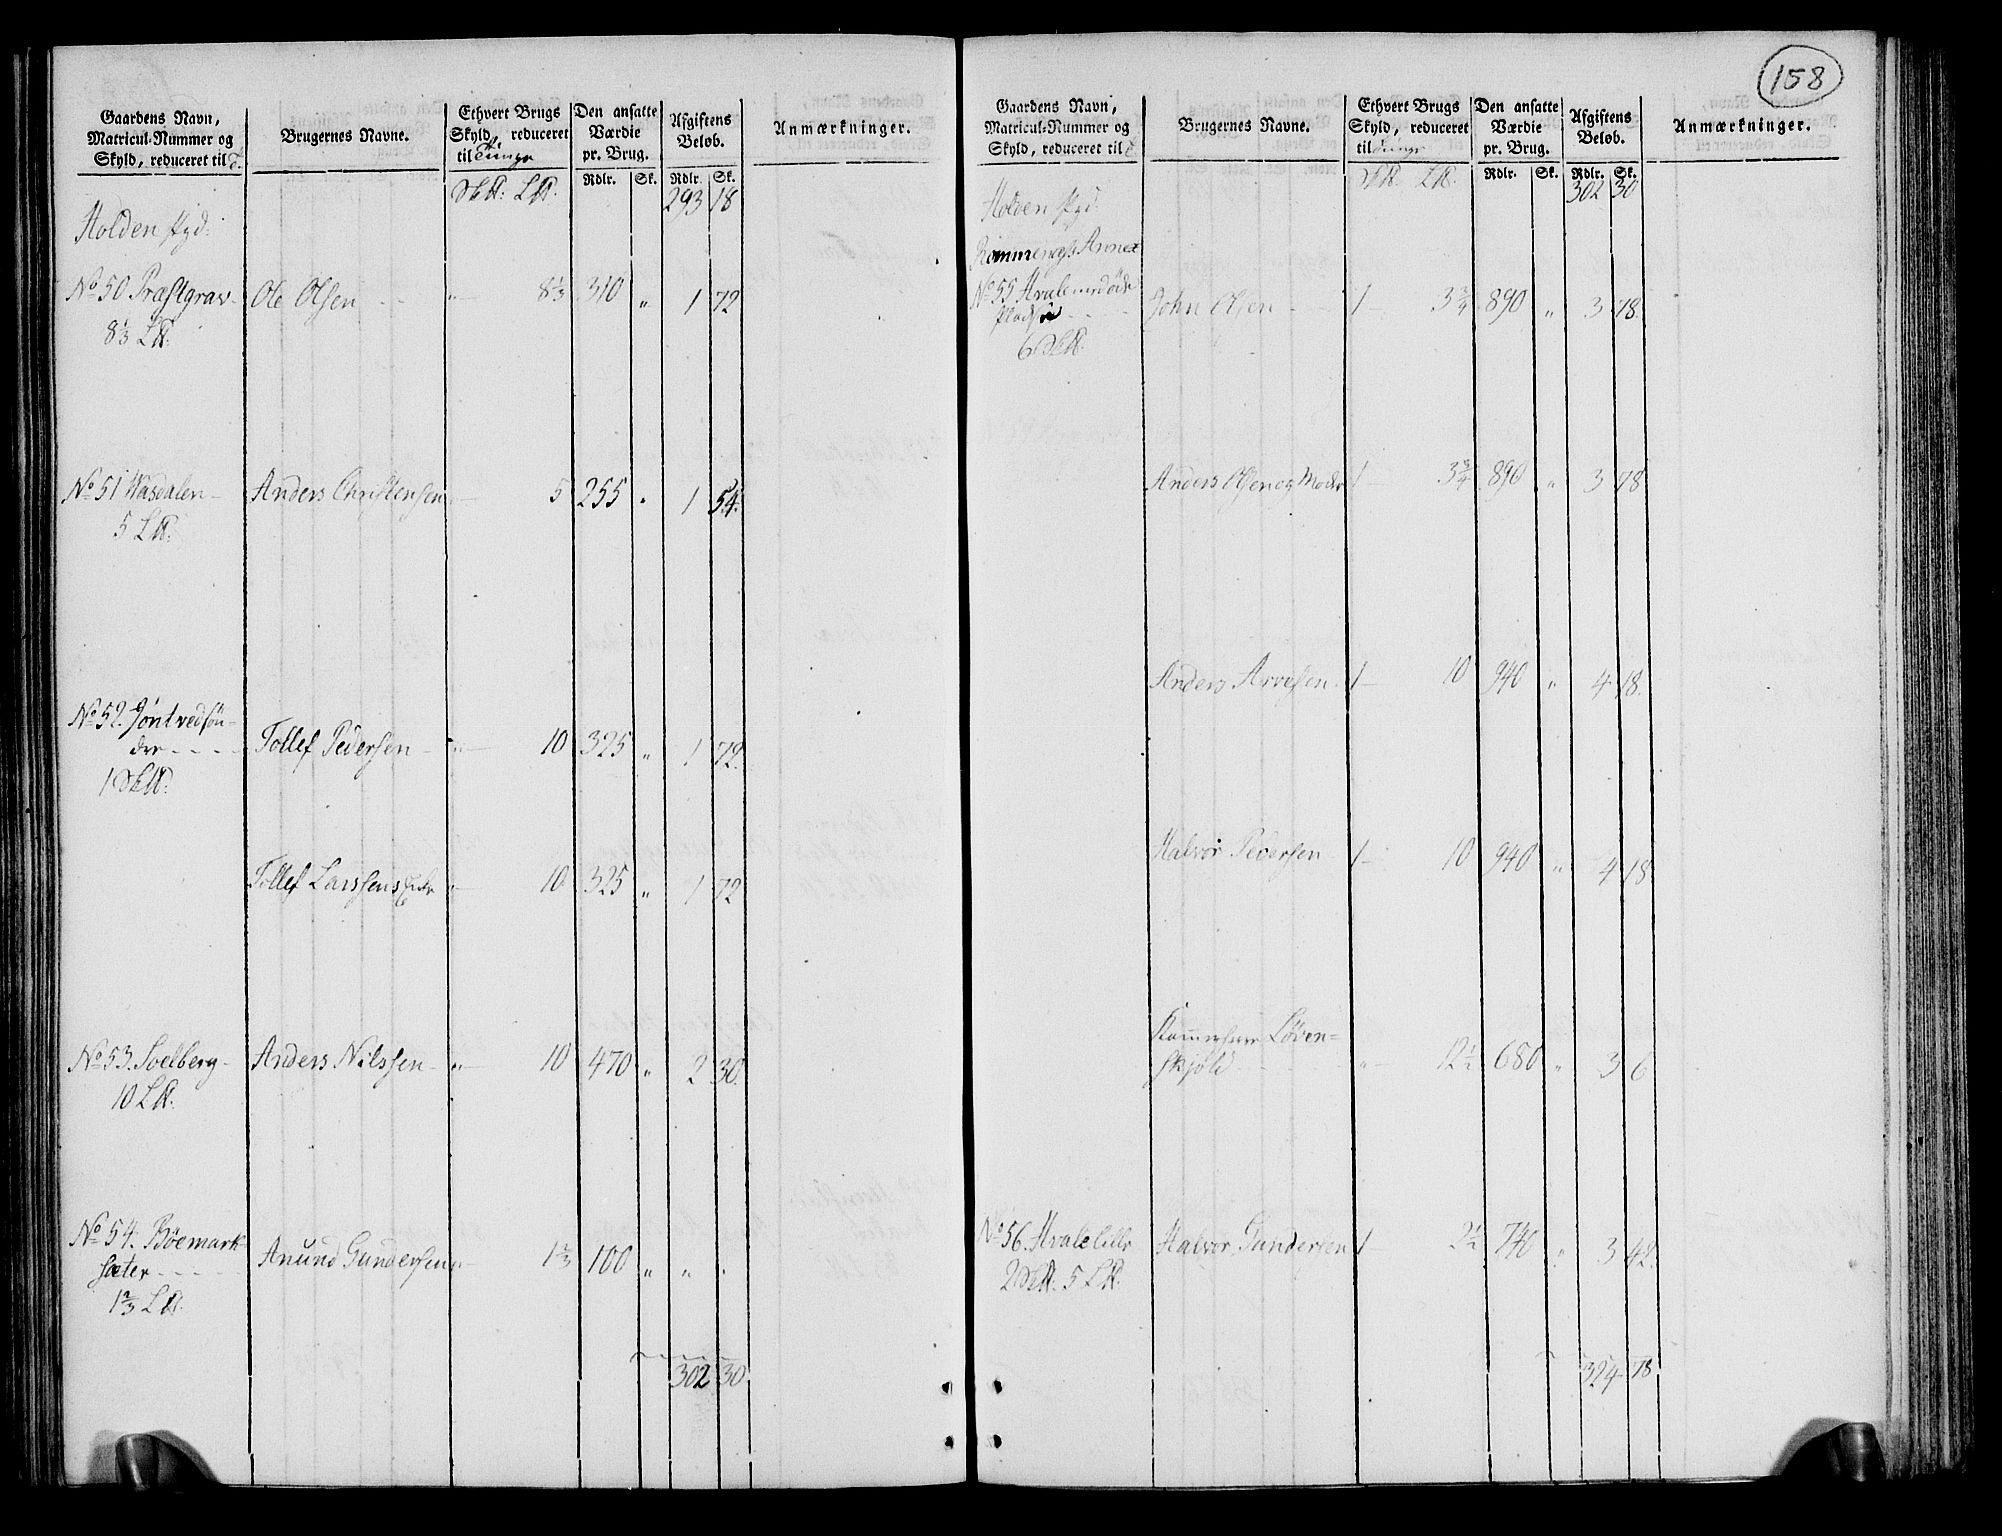 158
Gaardens Navn,
Matricul-Nummer og
Skyld, reduceret til T.
Brugernes Navne.
Ethvert Brugs
Skyld, reduceret
til Tunge
Den ansatte
Værdie
pr. Brug.
Afgiftens
Beløb.
Anmærkninger.
Rdlr. Sk. Rdlr. Sk.
293 18
Holden Pgd:
No 50 Præstgrav- Ole Olsen " 8 1/3 310 " 1 72
8 1/3 L
No 51 Wasdalen- Anders Christensen " 5 255 " 1 54.
5 L
No 52. Jontvedsøn-
dre Tollef Pedersen " 10 325 " 1 72.
1
Tollef Larssens Enke " 10 325 " 1 72
No 53. Solberg- Anders Nilssen " 10 470 " 2 30.
10 L
No 54. Bøemark-
sæter Anund Gundersen " 1 2/3 100 " " "
1 2/3 L
302 30
Gaardens Navn,
Matricul-Nummer og
Skyld, reduceret til
Brugernes Navne.
Ethvert Brugs
Skyld, reduceret
til Tunge
Den ansatte
Værdie
pr. Brug.
Afgiftens
Beløb.
Anmærkninger.
Rdlr. Sk. Rdlr. Sk.
302 30
Holden Pgd:
Annex
No 55 John Olsen 1 3 3/4 890 " 3 78.
6
Anders Olsen og Moder 1 3 3/4 890 " 3 78
Anders Arvesen 1 10 940 " 4 18.
Halvor Pedersen 1 10 940 " 4 18.
Kammerherre Løven-
skjold " 12 1/2 680 " 3 6
No 56. Hvalelille Halvor Gundersen 1 2 1/2 740 " 3 42.
2 5 L
324 78